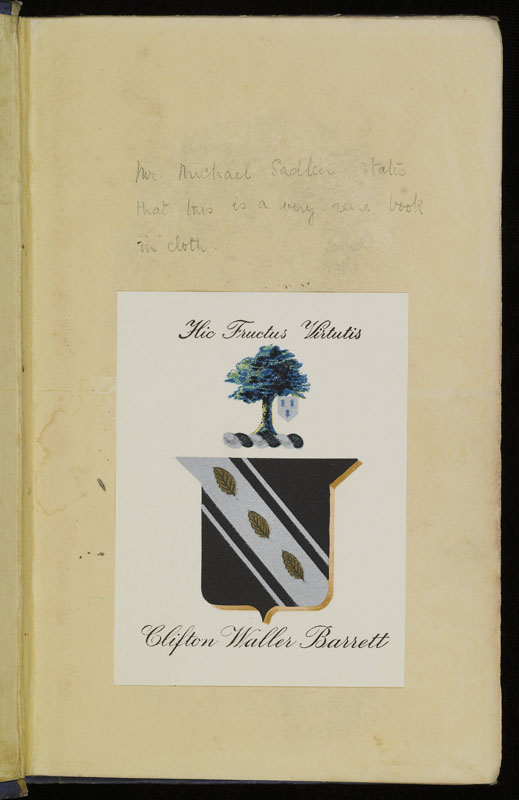 Mr Michael Sadleir states
that this is a very rare book
in cloth.
Hic Fructus Virtutis
Clifton Waller Barrett